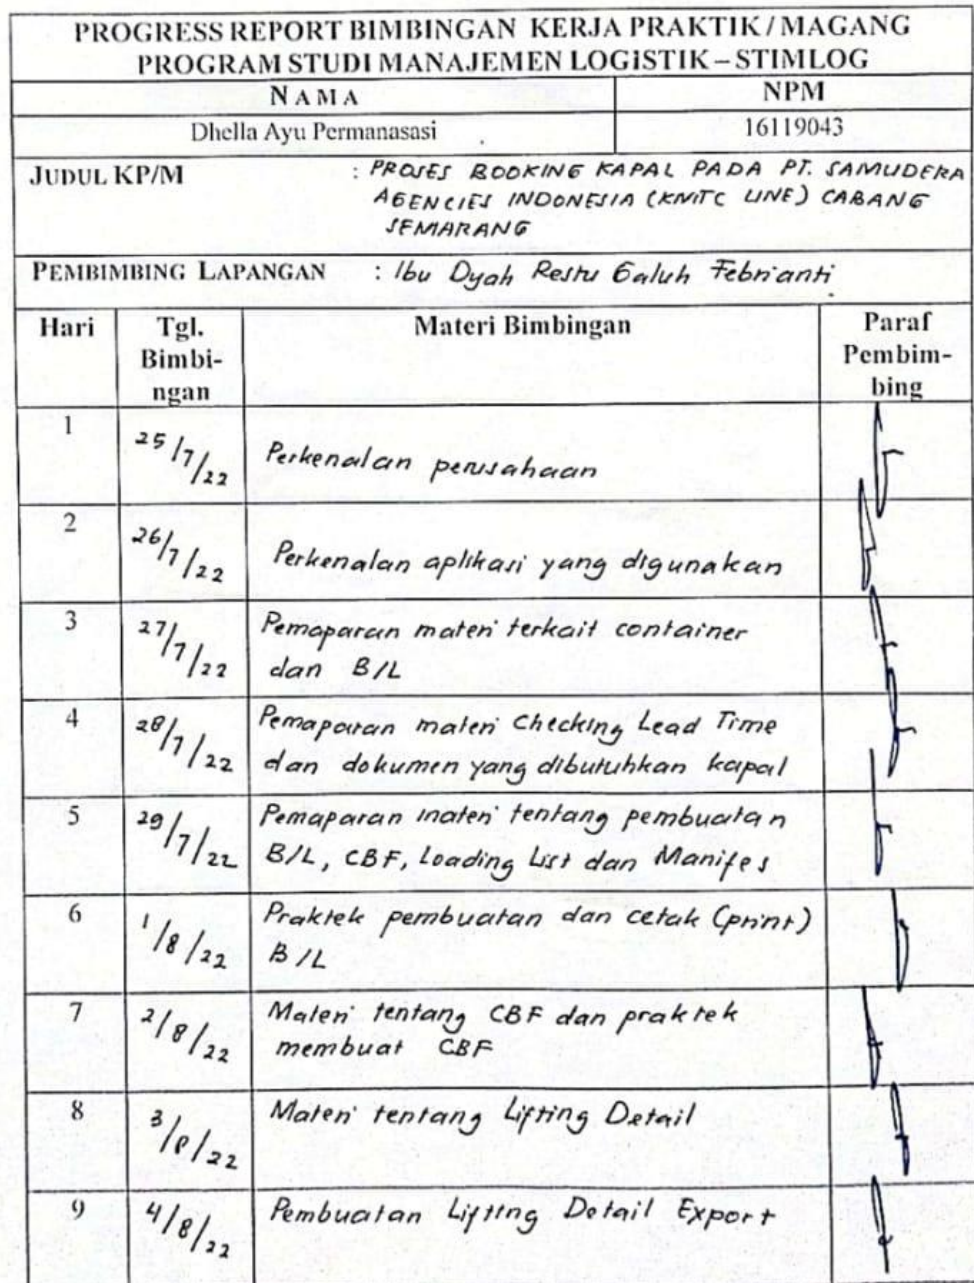 PROGRESS REPORT BIMBINGAN KERJA PRAKTIK / MAGANG
PROGRAM STUDI MANAJEMEN LOGISTIK – STIMLOG
NAMA NPM
Dhella Ayu Permanasasi 16119043
JUDUL KP/M : PROSES BOOKING KAPAL PADA PT. SAMUDERA
AGENCIES INDONESIA (KMTC LINE) CABANG
SEMARANG
PEMBIMBING LAPANGAN : Ibu Dyah Restu Galuh Febrianti
Hari Tgl. Materi Bimbingan Paraf
Bimbi- Pembim-
ngan bing
1 25/7/22 Perkenalan perusahaan
2 26/7/22 Perkenalan aplikasi yang digunakan
3 27/7/22 Pemaparan materi terkait container
dan B/L
4 28/7/22 Pemaparan materi Checking Lead Time
dan dokumen yang dibutuhkan kapal
5 29/7/22 Pemaparan materi tentang pembuatan
B/L, CBF, Loading List dan Manifes
6 1/8/22 Praktek pembuatan dan cetak (print)
B/L
7 2/8/22 Materi tentang CBF dan praktek
membuat CBF
8 3/8/22 Materi tentang Lifting Detail
9 4/8/22 Pembuatan Lifting Detail Export